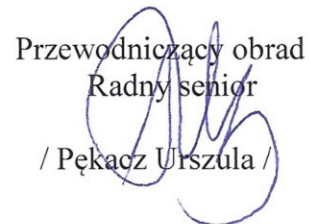 Przewodniczący obrad
Radny senior
/ Pękacz Urszula /